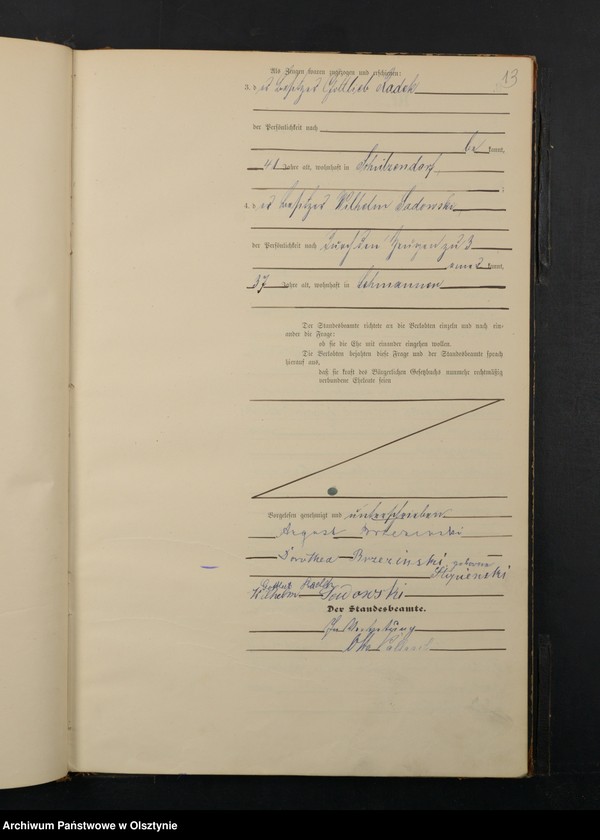 13
Als Zeugen waren zugezogen und erschienen:
3. der Besitzer Gottlieb Radek
der Persönlichkeit nach
be kannt,
41 Jahre alt, wohnhaft in Schützendorf
;
4. der Besitzer Wilhelm Sadowski
der Persönlichkeit nach durch den Zeugen zu 3
kannt,
37 Jahre alt, wohnhaft in Lehmannen
Der Standesbeamte richtete an die Verlobten einzeln und nach ein-
ander die Frage:
ob sie die Ehe mit einander eingehen wollen.
Die Verlobten bejahten diese Frage und der Standesbeamte sprach
hierauf aus,
daß sie kraft des Bürgerlichen Gesetzbuchs nunmehr rechtmäßig
verbundene Eheleute seien
Vorgelesen, genehmigt und unterschrieben
August Brzezinski
Dorothea Brzezinski geborene
Gottlieb Radek
Wilhelm Sadowski
Der Standesbeamte.
In Vertretung
Otto
Archiwum Państwowe w Olsztynie